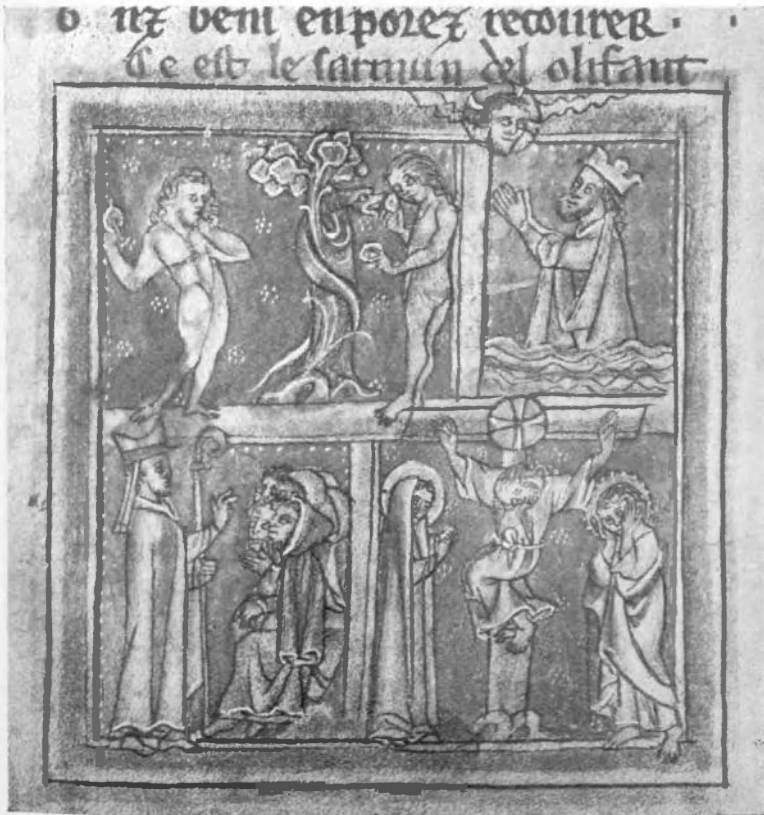 nz beni en porez recourer.
Ce est le sarmun del olifant